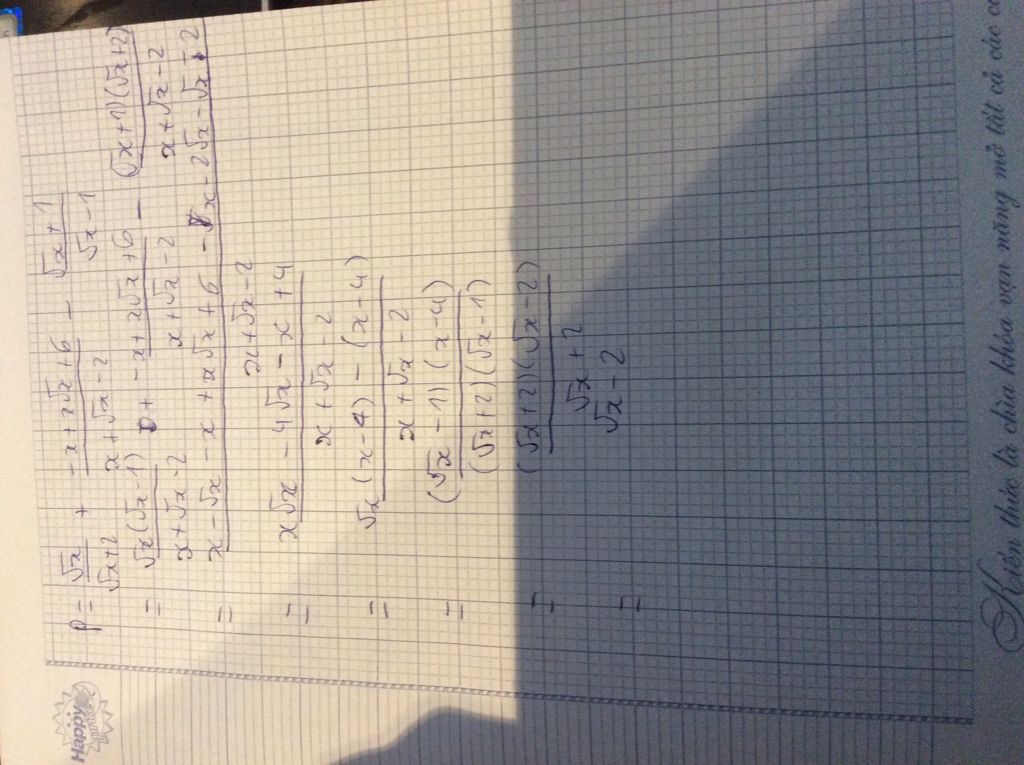 Happy
P = √x/(√x+2) + (-x+x√x+6)/(x+√x-2) - (√x+1)/(√x-1)
= √x(√x-1)/(x+√x-2) + (-x+x√x+6)/(x+√x-2) - (√x+1)(√x+2)/(x+√x-2)
= (x-√x-x+x√x+6-x-2√x-√x-2)/(x+√x-2)
= (x√x-4√x-x+4)/(x+√x-2)
= (√x(x-4)-(x-4))/(x+√x-2)
= (√x-1)(x-4)/((√x+2)(√x-1))
= (√x+2)(√x-2)/(√x+2)
= √x-2
Kiến thức là chìa khóa vạn năng mở tất cả các